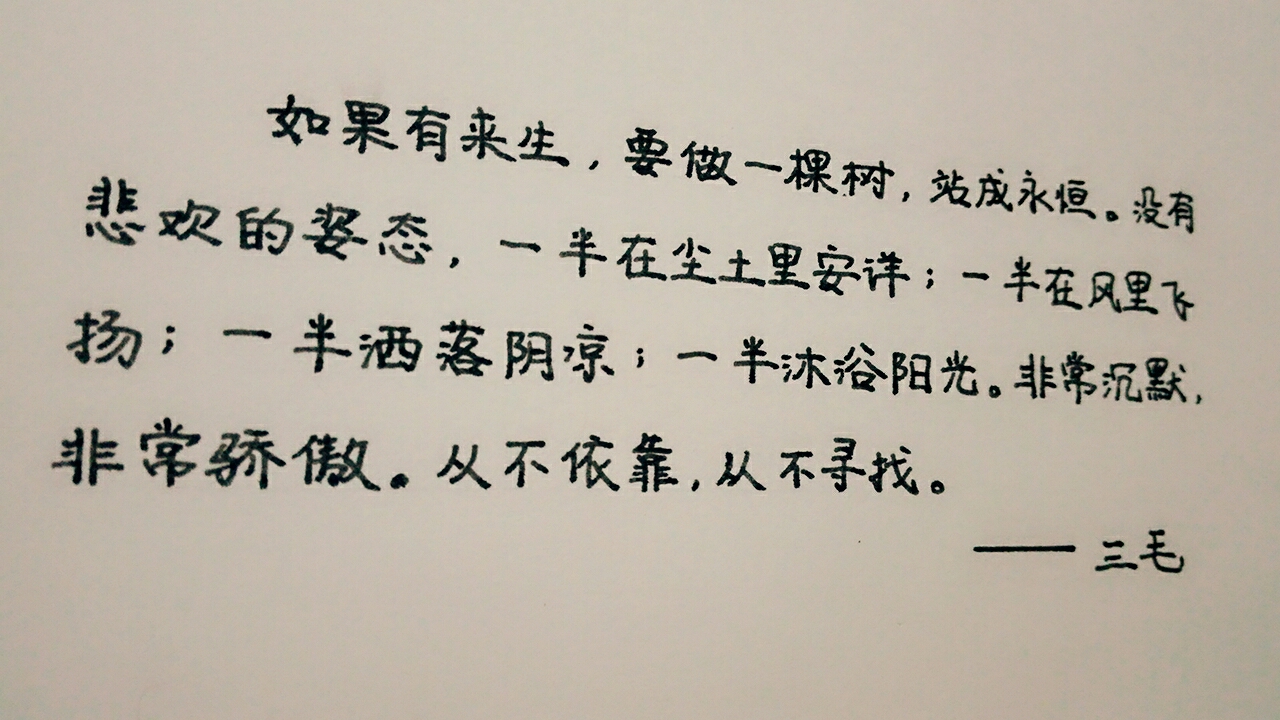 如果有来生，要做一棵树，站成永恒。没有
悲欢的姿态，一半在尘土里安详；一半在风里飞
扬；一半洒落阴凉；一半沐浴阳光。非常沉默，
非常骄傲。从不依靠，从不寻找。
—— 三毛